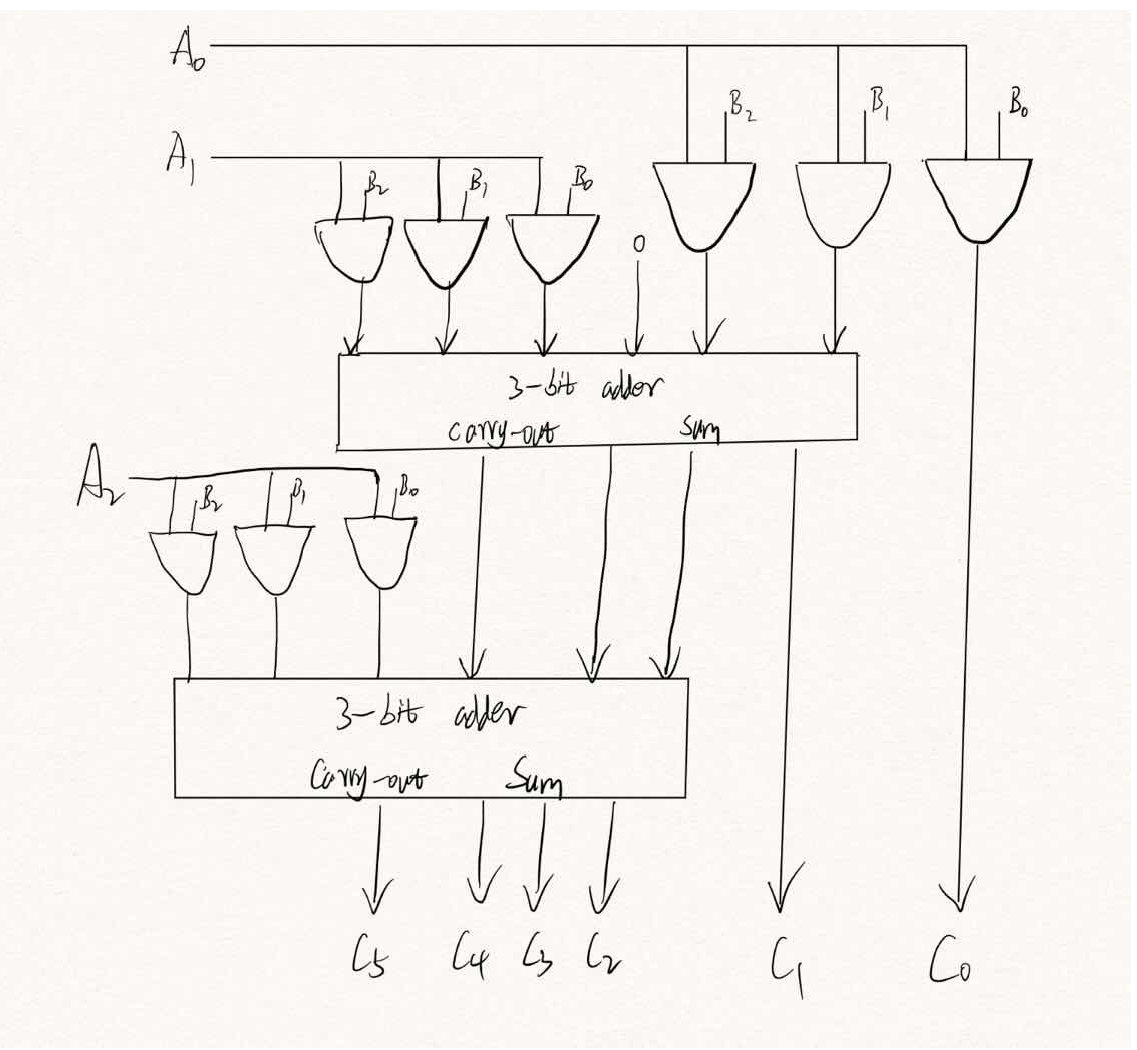 A₀
B₂ B₁ B₀
A₁
B₂ B₁ B₀
0
3-bit adder
carry-out sum
A₂
B₂ B₁ B₀
3-bit adder
Carry-out Sum
C₅ C₄ C₃ C₂ C₁ C₀